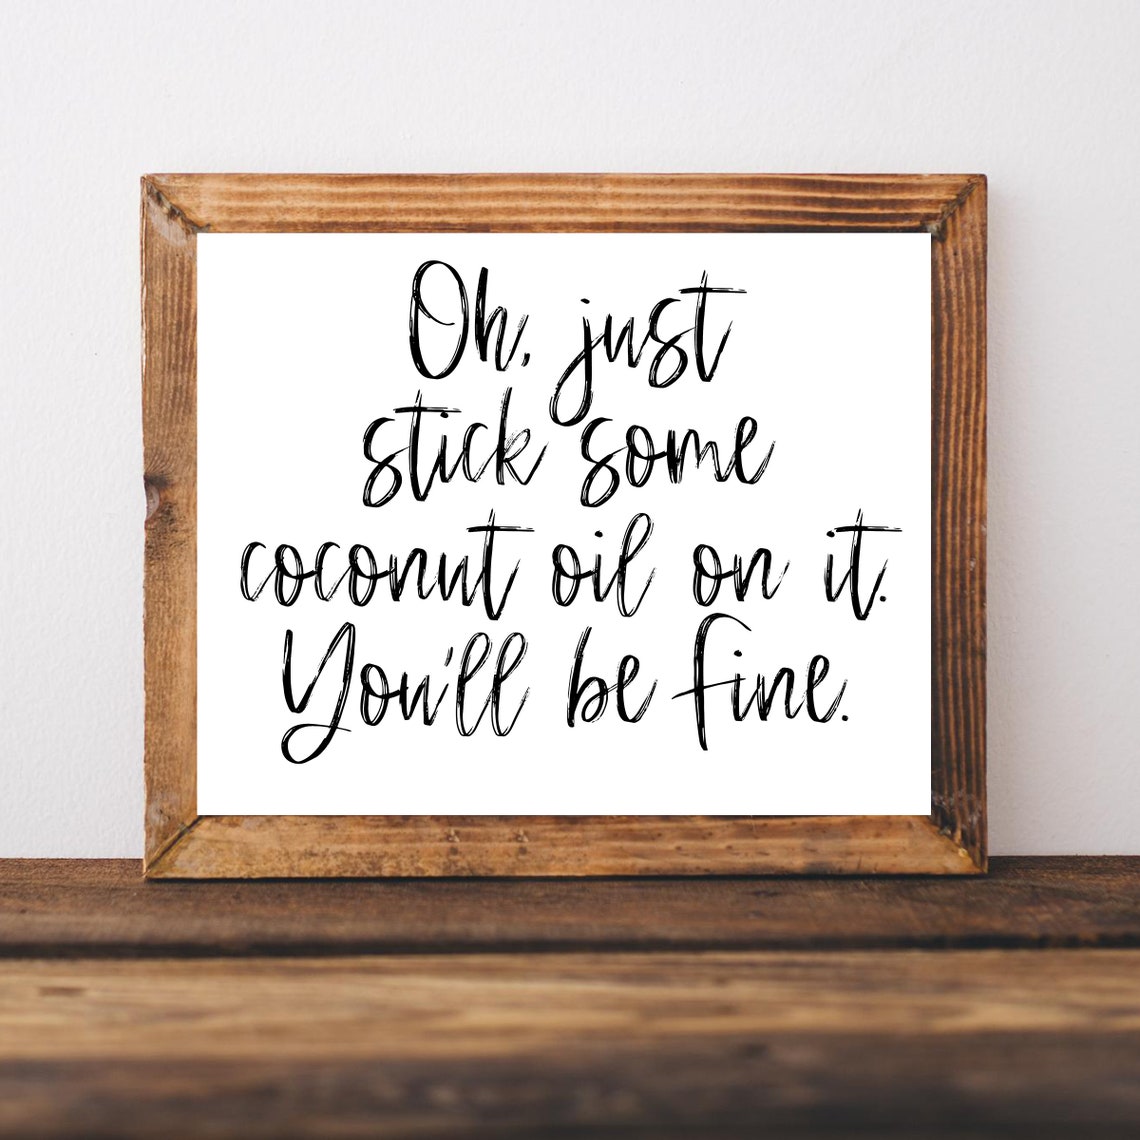 Oh, just
stick some
coconut oil on it.
You'll be fine.